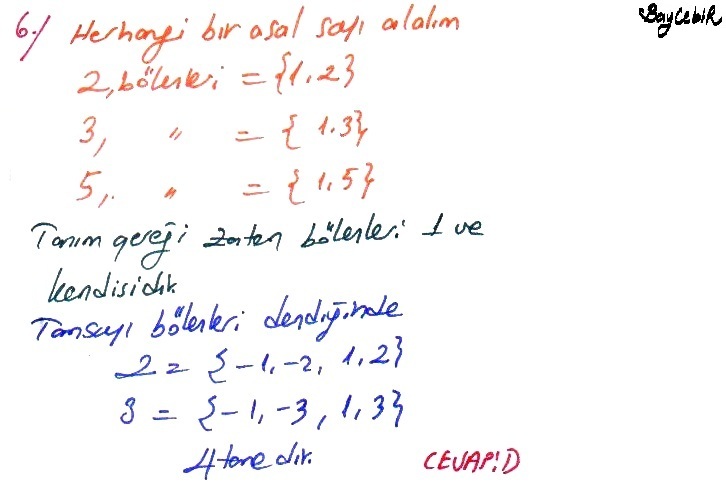 BayCebiR
6./ Herhangi bir asal sayı alalım
2, bölenleri = {1,2}
3, " = {1.3}
5, " = {1,5}
Tanım gereği zaten bölenleri 1 ve
kendisidir.
Tamsayı bölenleri dendiğinde
2 = {-1,-2, 1,2}
3 = {-1,-3, 1,3}
4 tane dir.
CEVAP:D